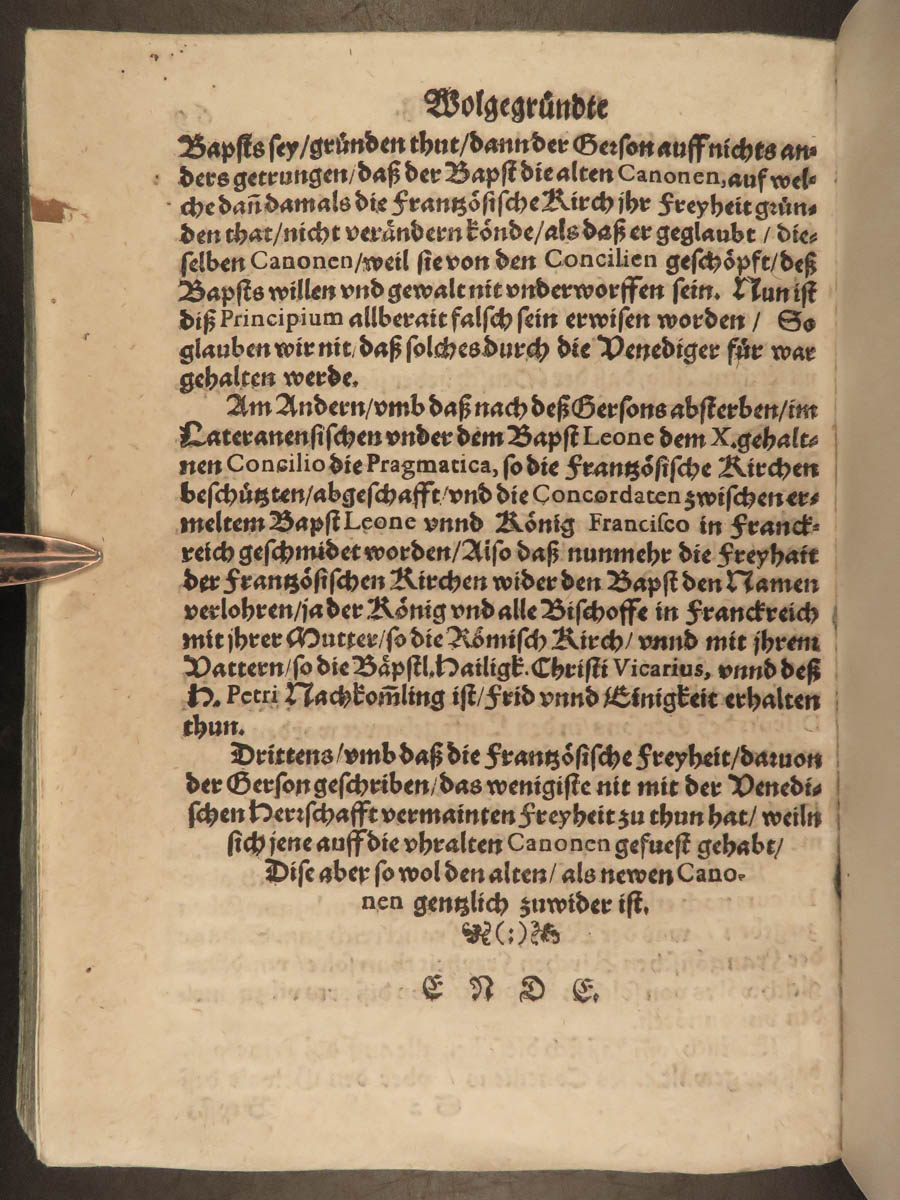 Wolgegründte
Bapsts sey/gründen thut/dann der Gerson auff nichts an-
ders getrungen/daß der Bapst die alten Canonen, auf wel-
che dañ damals die Frantzösische Kirch jhr Freyheit grün-
den that/nicht verändern könde/als daß er geglaubt / die-
selben Canonen/weil sie von den Concilien geschöpft/deß
Bapsts willen vnd gewalt nit vnderworffen sein. Nun ist
diß Principium allberait falsch sein erwisen worden / So
glauben wir nit/daß solches durch die Venediger für war
gehalten werde.
Am Andern/vmb daß nach deß Gersons absterben/im
Lateranensischen vnder dem Bapst Leone dem X. gehalt-
nen Concilio die Pragmatica, so die Frantzösische Kirchen
beschützten/abgeschafft/vnd die Concordaten zwischen er-
meltem Bapst Leone vnnd König Francisco in Franck-
reich geschmidet worden/Also daß nunmehr die Freyhait
der Frantzösischen Kirchen wider den Bapst den Namen
verlohren/ja der König vnd alle Bischoffe in Franckreich
mit jhrer Mutter/so die Römisch Kirch/ vnnd mit jhrem
Vattern/so die Bäpstl. Hailigk. Christi Vicarius, vnnd deß
H. Petri Nachkom̃ling ist/Frid vnnd Einigkeit erhalten
thun.
Drittens/vmb daß die Frantzösische Freyheit/daruon
der Gerson geschriben/das wenigiste nit mit der Venedi-
schen Herrschafft vermainten Freyheit zu thun hat/ weiln
sich jene auff die vhralten Canonen gefuest gehabt/
Dise aber so wol den alten/ als newen Cano-
nen gentzlich zuwider ist.
(:)
E N D E.